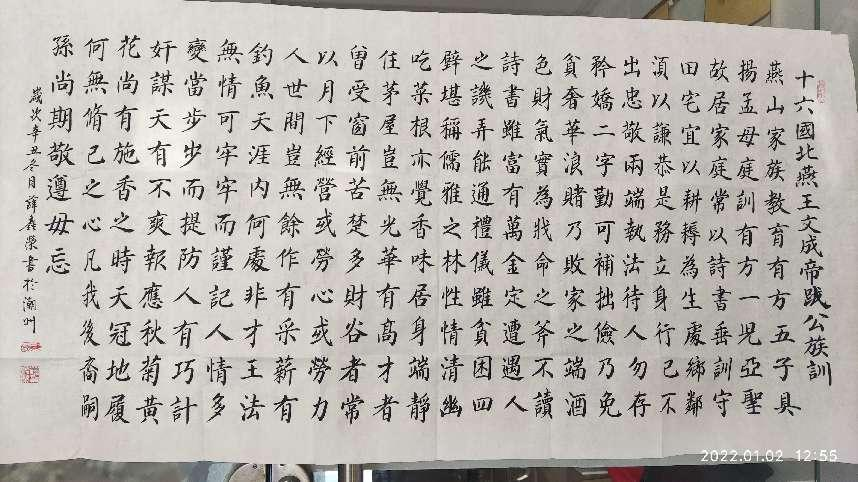 十六國北燕王文成帝跋公族訓
燕山家族教育有方五子具
揚孟母庭訓有方一児亞聖
故居家庭常以詩書垂訓守
田宅宜以耕耨為生處鄉鄰
須以謙恭是務立身行己不
出忠敬兩端執法待人勿存
矜嬌二字勤可補拙儉乃免
貧奢華浪賭乃敗家之端酒
色財氣實為戕命之斧不讀
詩書雖富有萬金定遭遇人
之譏弄能通禮儀雖貧困四
壁堪稱儒雅之林性情清幽
吃菜根亦覺香味居身端靜
住茅屋豈無光華有髙才者
曾受窗前苦楚多財谷者常
以月下經營或勞心或勞力
人世間豈無餘作有采薪有
釣魚天涯内何處非才王法
無情可牢牢而謹記人情多
變當步步而提防人有巧計
奸謀天有不爽報應秋菊黃
花尚有施香之時天冠地履
何無脩己之心凡我後裔嗣
孫尚期敬遵毋忘
歲次辛丑冬月 書於潮州
2022.01.02 12:55